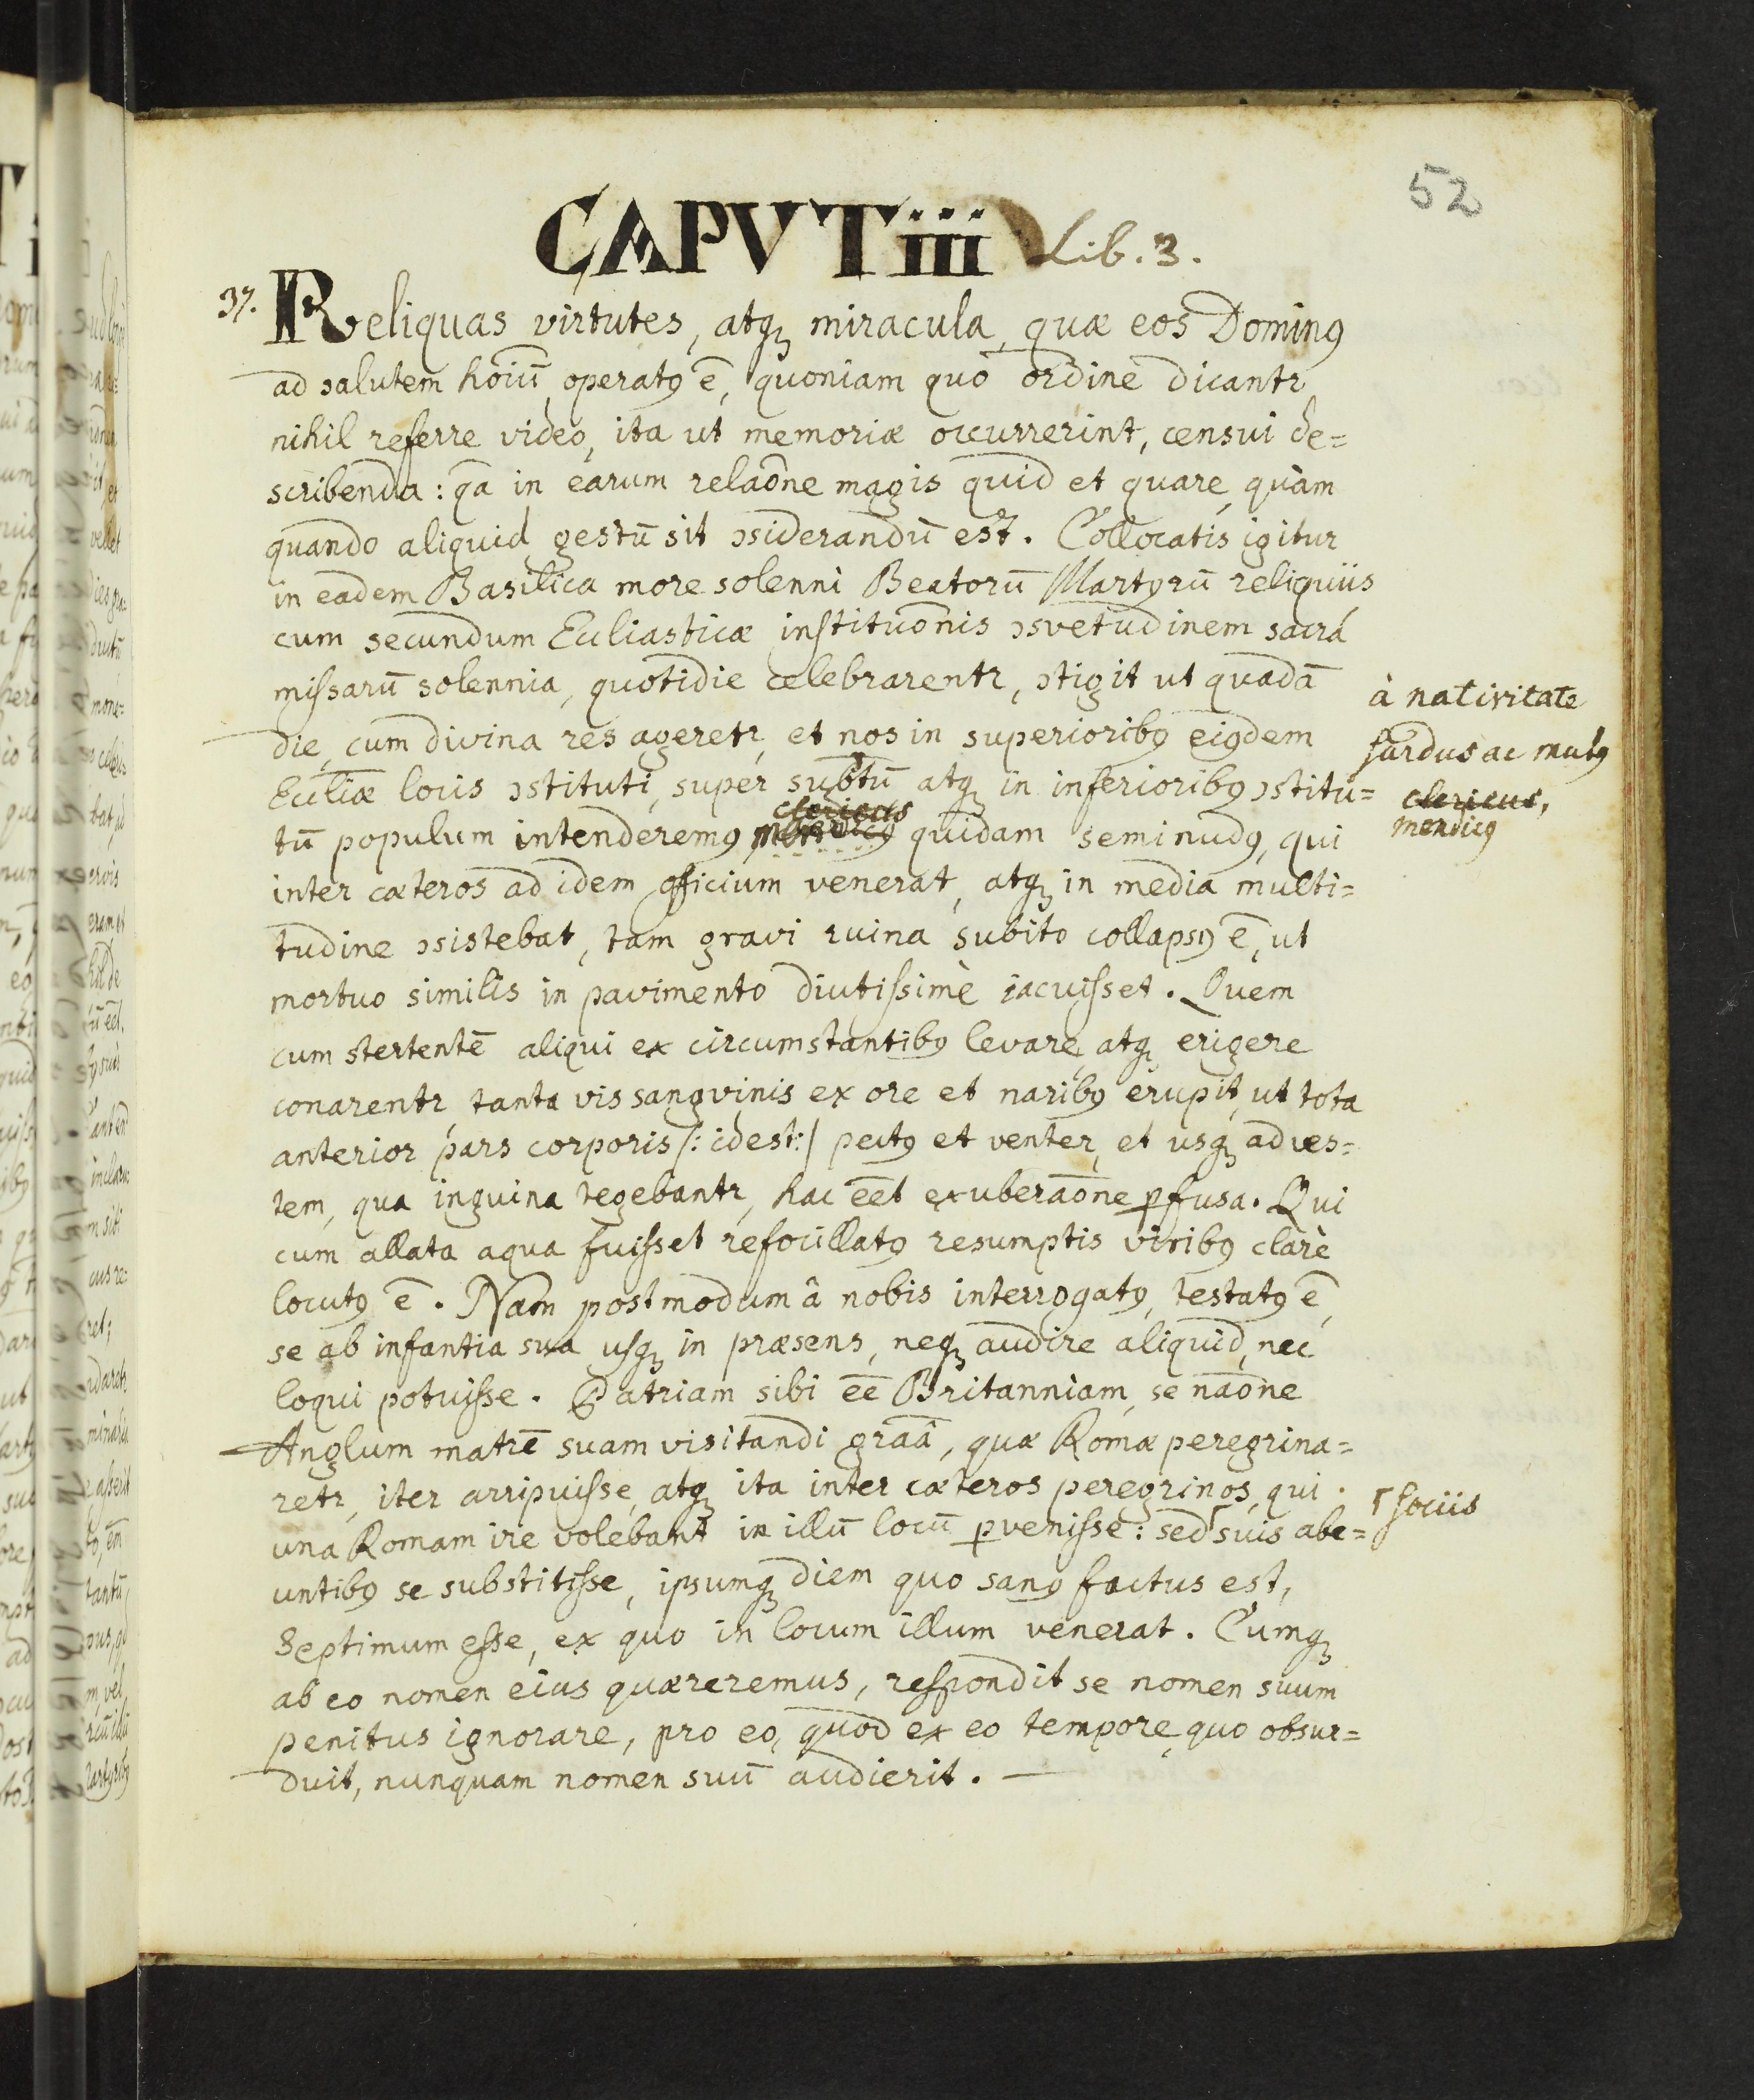 52
CAPVT iii Lib. 3.
37. Reliquas virtutes, atqꝫ miracula, quæ eos Dominꝰ
ad salutem hoiũ, operatꝰ ẽ, quoniam quo ordine dicantr
nihil referre video, ita ut memoriæ occurrerint, censui de=
scribenda: qa in earum relaõne magis quid et quare, quàm
quando aliquid gestũ sit ↄsiderandũ est. Collocatis igitur
in eadem Basilica more solenni Beatorũ Martyrũ reliquiis
cum secundum Eccliasticæ instituõnis ↄsvetudinem sacrá
missarũ solennia, quotidie celebrarentr, ↄtigit ut quadã
die, cum divina res ageretr, et nos in superioribꝰ eiꝰdem
Eccliæ locis ↄstituti, super subtũ atqꝫ in inferioribꝰ ↄstitu=
tũ populum intenderemꝰ clericus quidam seminudꝰ, qui
inter cæteros ad idem officium venerat, atqꝫ in media multi=
tudine ↄsistebat, tam gravi ruina subito collapsꝰ ẽ, ut
mortuo similis in pavimento diutissimè iacuisset. Quem
cum stertentẽ aliqui ex circumstantibꝰ levare, atqꝫ erigere
conarentr, tanta vis sangvinis ex ore et naribꝰ erupit, ut tota
anterior pars corporis /: idest :/ pectꝰ et venter, et usqꝫ ad ves=
tem, qua inguina tegebantr, hac eẽt exuberaõne ꝑfusa. Qui
cum allata aqua fuisset refocillatꝰ resumptis viribꝰ clarè
locutꝰ ẽ. Nam postmodum â nobis interrogatꝰ, testatꝰ ẽ,
se ab infantia sua usqꝫ in præsens, neqꝫ audire aliquid, nec
loqui potuisse. Patriam sibi eẽ Britanniam, se naõne
Anglum matrẽ suam visitandi graã, quæ Romæ peregrina=
retr, iter arripuisse, atqꝫ ita inter cæteros peregrinos, qui
una Romam ire volebant in illũ locũ ꝑvenisse: sed ⸢suis abe=
untibꝰ se substitisse, ipsumqꝫ diem quo sanꝰ factus est,
Septimum esse, ex quo in locum illum venerat. Cumqꝫ
ab eo nomen eius quæreremus, respondit se nomen suum
penitus ignorare, pro eo, quod ex eo tempore, quo obsur=
duit, nunquam nomen suũ audierit. —
à nativitate
surdus ac mutꝰ
clericus,
mendicꝰ
⸢ sociis